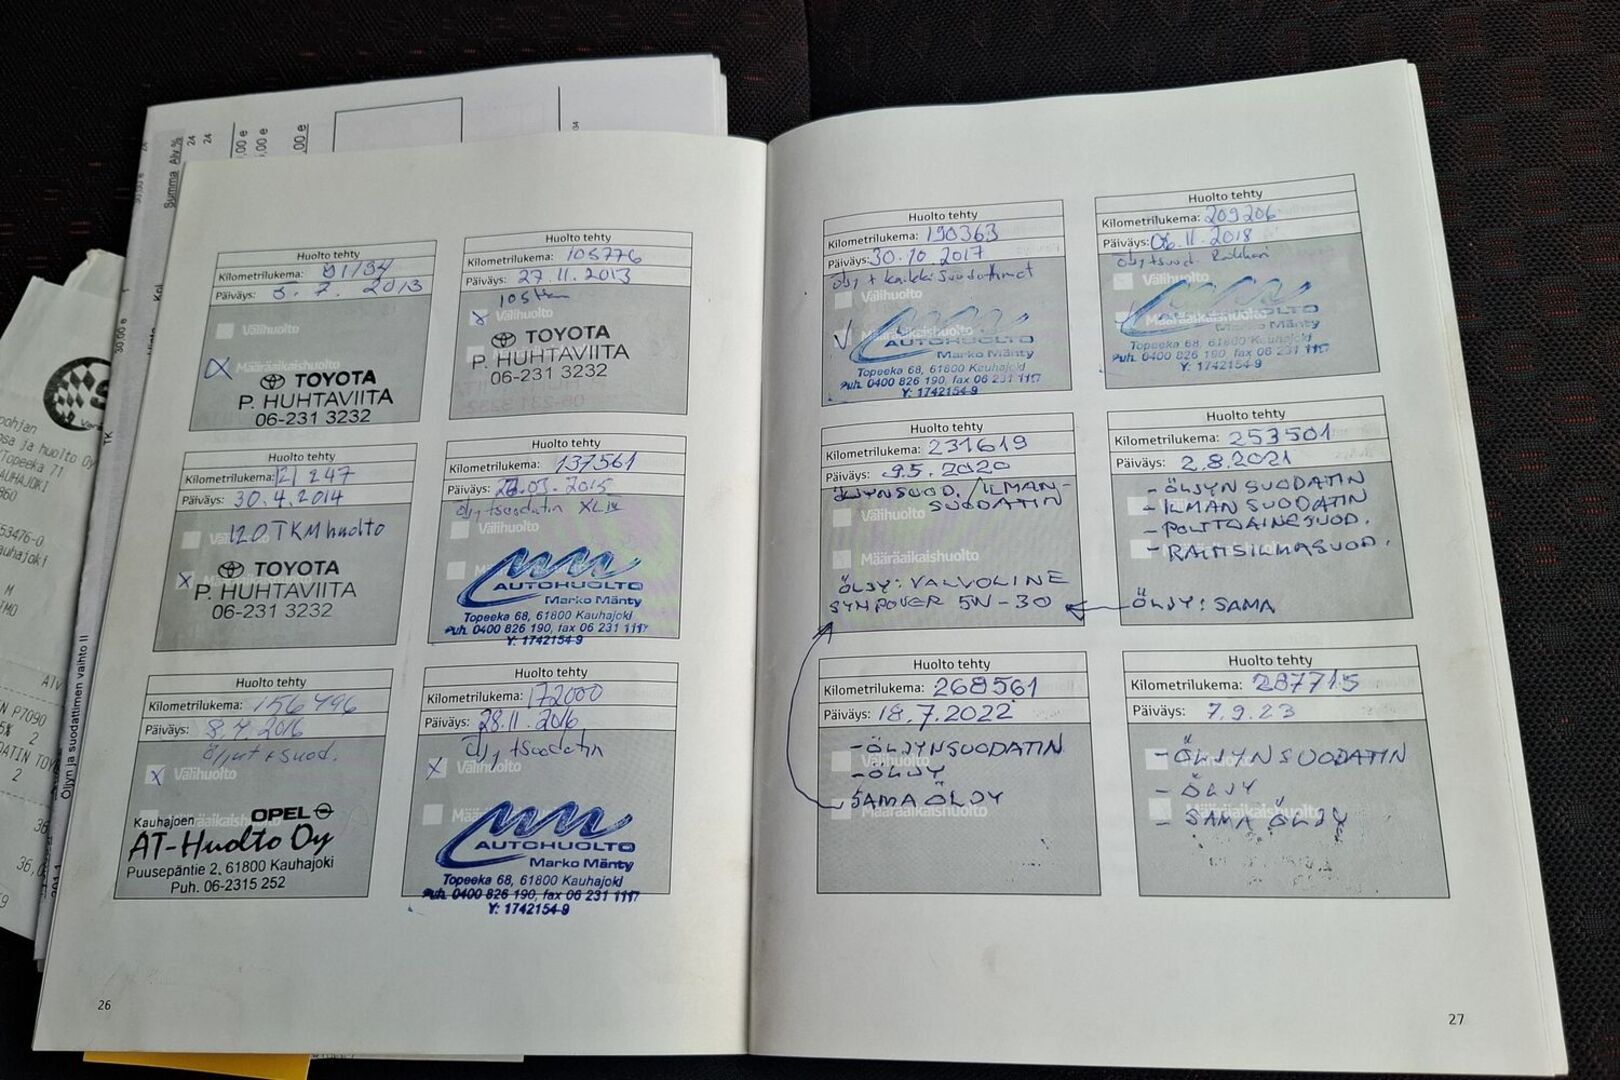 Summa Alv %
24
24
30,00 e
Öljyn ja suodattimen vaihto II
TK
pohjan
osa ja huolto Oy
Topeeka 71
KAUHAJOKI
Huolto tehty
Kilometrilukema:
Päiväys: 5. 7. 2013
Välihuolto
Määräaikaishuolto
TOYOTA
P. HUHTAVIITA
06-231 3232
Huolto tehty
Kilometrilukema: 105776
Päiväys: 27.11.2013
Välihuolto
TOYOTA
P. HUHTAVIITA
06-231 3232
Huolto tehty
Kilometrilukema: 121 247
Päiväys: 30.4.2014
120 TKM huolto
TOYOTA
P. HUHTAVIITA
06-231 3232
Huolto tehty
Kilometrilukema: 137561
Päiväys: 03. 2015
Öljy + suodatin
Välihuolto
AUTOHUOLTO
Marko Mänty
Topeeka 68, 61800 Kauhajoki
Puh. 0400 826 190, fax 06 231 1117
Y: 1742154-9
Huolto tehty
Kilometrilukema: 156496
Päiväys: 8.4.2016
Öljyt + suod.
Välihuolto
Määräaikaishuolto
Kauhajoen OPEL
AT-Huolto Oy
Puusepäntie 2, 61800 Kauhajoki
Puh. 06-2315 252
Huolto tehty
Kilometrilukema: 172000
Päiväys: 28.11.2016
Öljy + suodatin
Välihuolto
AUTOHUOLTO
Marko Mänty
Topeeka 68, 61800 Kauhajoki
Puh. 0400 826 190, fax 06 231 1117
Y: 1742154-9
26
Huolto tehty
Kilometrilukema: 190363
Päiväys: 30.10.2017
Öljy + kaikki suodattimet
Välihuolto
Määräaikaishuolto
AUTOHUOLTO
Marko Mänty
Topeeka 68, 61800 Kauhajoki
Puh. 0400 826 190, fax 06 231 1117
Y: 1742154-9
Huolto tehty
Kilometrilukema: 209206
Päiväys: 06.11.2018
Välihuolto
Määräaikaishuolto
AUTOHUOLTO
Marko Mänty
Topeeka 68, 61800 Kauhajoki
Puh. 0400 826 190, fax 06 231 1117
Y: 1742154-9
Huolto tehty
Kilometrilukema: 231619
Päiväys: 9.5.2020
ÖLJYNSUOD. / ILMAN-
SUODATIN
Välihuolto
Määräaikaishuolto
ÖLJY: VALVOLINE
SYNPOVER 5W-30
Huolto tehty
Kilometrilukema: 253501
Päiväys: 2.8.2021
- ÖLJYN SUODATIN
- ILMAN SUODATIN
- POLTTOAINESUOD.
- RAITISILMASUOD.
ÖLJY: SAMA
Huolto tehty
Kilometrilukema: 268561
Päiväys: 18.7.2022
- ÖLJYNSUODATIN
- ÖLJY
SAMA ÖLJY
Määräaikaishuolto
Huolto tehty
Kilometrilukema: 287715
Päiväys: 7.9.23
- ÖLJYNSUODATIN
- ÖLJY
- SAMA ÖLJY
Määräaikaishuolto
27